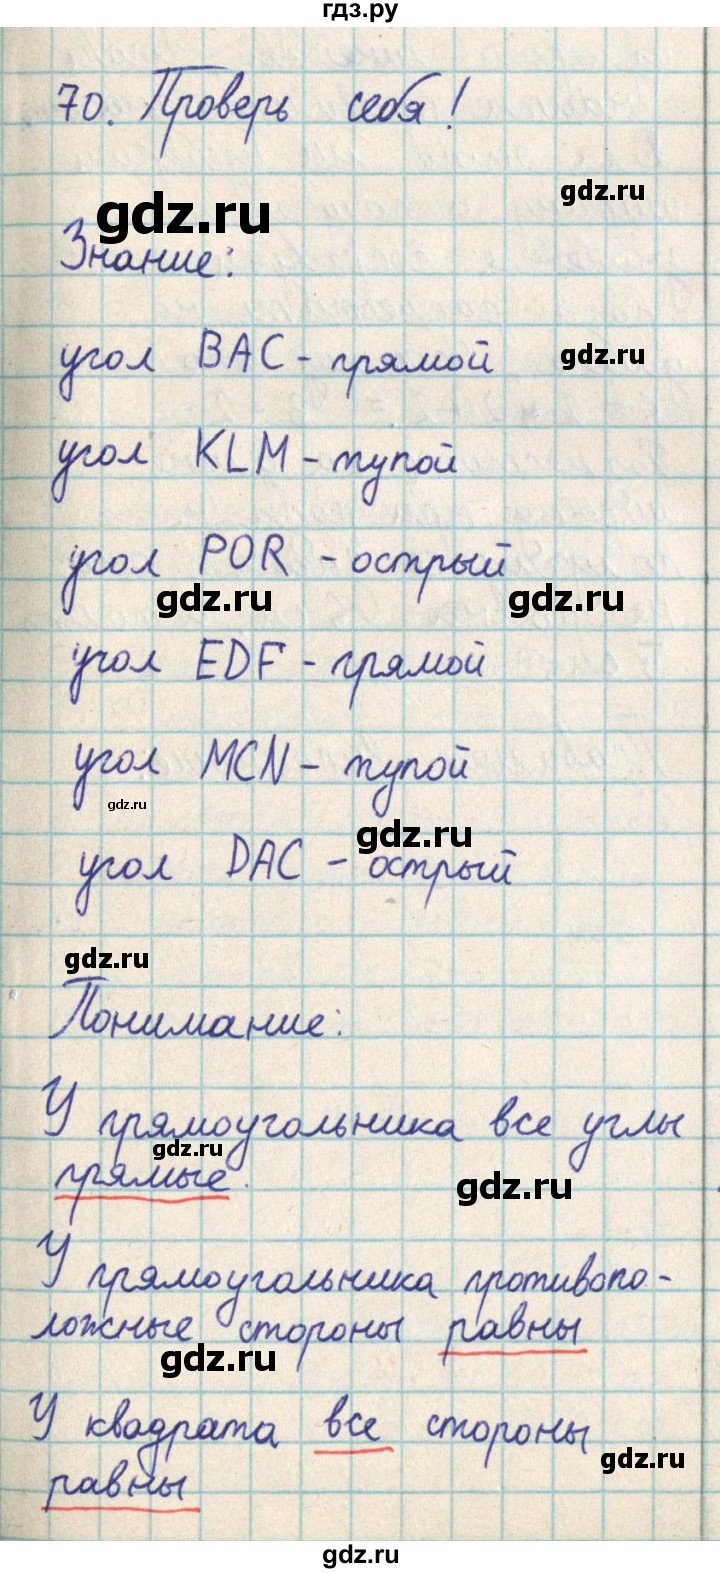 гдз.ру
70. Проверь себя!
gdz.ru
gdz.ru
Знание:
угол BAC - прямой
gdz.ru
угол KLM - тупой
угол POR - острый
gdz.ru
gdz.ru
угол EDF - прямой
угол MCN - тупой
gdz.ru
gdz.ru
угол DAC - острый
gdz.ru
Понимание:
У прямоугольника все углы
gdz.ru
прямые.
gdz.ru
У прямоугольника противопо-
ложные стороны равны
gdz.ru
У квадрата все стороны
gdz.ru
равны
gdz.ru